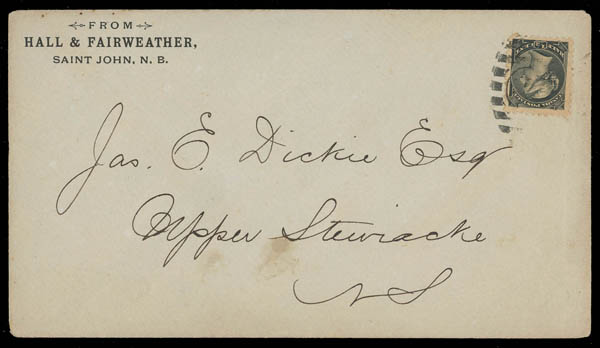 FROM
HALL & FAIRWEATHER,
SAINT JOHN, N. B.
Jas. E. Dickie Esq
Upper Stewiacke
N S